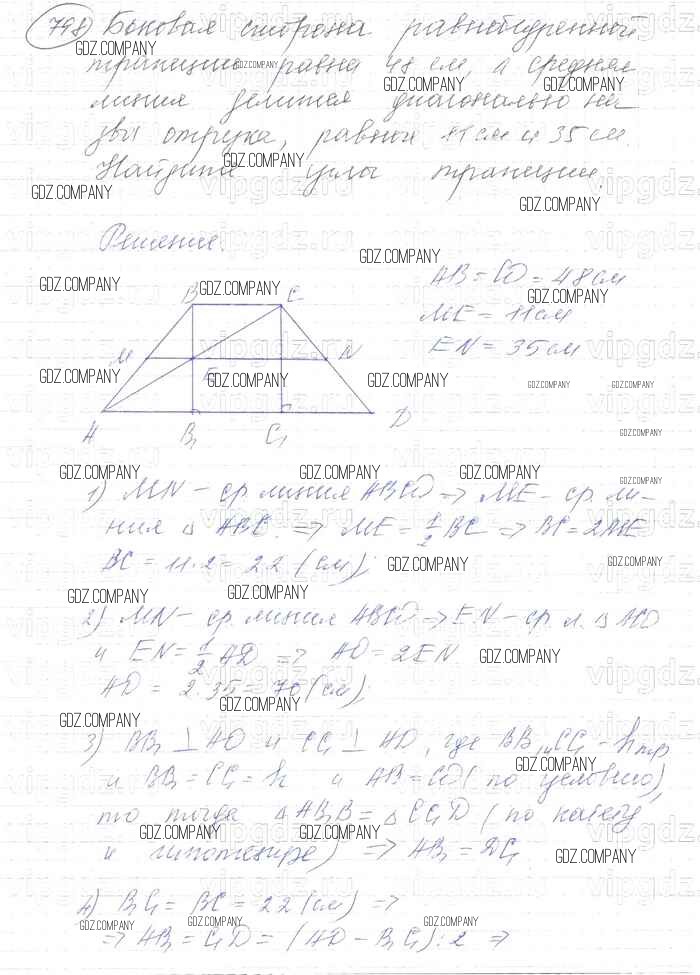 798) Боковая сторона равнобедренной
трапеции равна 48 см, а средняя
линия делится диагональю на
два отрезка, равных 11 см и 35 см.
Найдите углы трапеции.
Решение.
AB = CD = 48 см
ME = 11 см
EN = 35 см
B C
M E N
A B₁ C₁ D
1) MN - ср. линия ABCD => ME - ср. ли-
ния △ ABC. => ME = 1/2 BC => BC = 2ME
BC = 11 · 2 = 22 (см);
2) MN - ср. линия ABCD => EN - ср. л. △ ACD
и EN = 1/2 AD => AD = 2EN
AD = 2 · 35 = 70 (см);
3) BB₁ ⊥ AD и CC₁ ⊥ AD, где BB₁ и CC₁ - h тр
и BB₁ = CC₁ = h и AB = CD (по условию),
то тогда △ AB₁B = △ CC₁D (по катету
и гипотенузе) => AB₁ = DC₁
4) B₁C₁ = BC = 22 (см) =>
=> AB₁ = C₁D = (AD - B₁C₁) : 2 =>
GDZ.COMPANY
vipgdz.ru